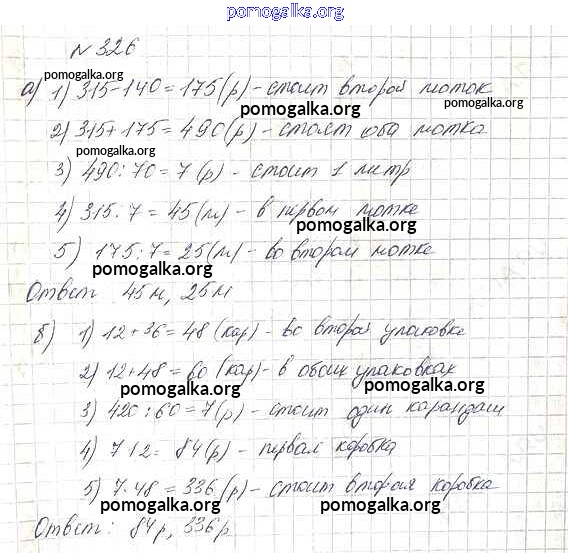 pomogalka.org
№ 326
pomogalka.org
а) 1) 315-140=175(р)-стоит второй моток
pomogalka.org pomogalka.org
2) 315+175=490(р)-стоят оба мотка
pomogalka.org
3) 490:70=7(р)-стоит 1 литр
4) 315:7=45(м)-в первом мотке
pomogalka.org
5) 175:7=25(м)-во втором мотке
pomogalka.org
Ответ 45м, 25м
б) 1) 12+36=48(кар)-во второй упаковке
pomogalka.org
2) 12+48=60(кар)-в обоих упаковках
pomogalka.org pomogalka.org
3) 420:60=7(р)-стоит один карандаш
4) 7·12=84(р)-первая коробка
pomogalka.org
5) 7·48=336(р)-стоит вторая коробка
pomogalka.org pomogalka.org
Ответ: 84р, 336р
pomogalka.org